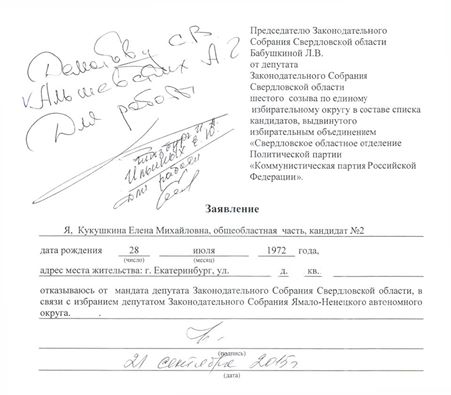 Председателю Законодательного
Собрания Свердловской области
Бабушкиной Л.В.
от депутата
Законодательного Собрания
Свердловской области
шестого созыва по единому
избирательному округу в составе списка
кандидатов, выдвинутого
избирательным объединением
«Свердловское областное отделение
Политической партии
«Коммунистическая партия Российской
Федерации».
С.В.
Для работы
Ильиных Е.Ю.
для работы
Заявление
Я, Кукушкина Елена Михайловна, общеобластная часть, кандидат №2
дата рождения 28 июля 1972 года,
(число) (месяц)
адрес места жительства: г. Екатеринбург, ул. д. кв.
отказываюсь от мандата депутата Законодательного Собрания Свердловской области, в
связи с избранием депутатом Законодательного Собрания Ямало-Ненецкого автономного
округа.
(подпись)
21 сентября 2015г
(дата)